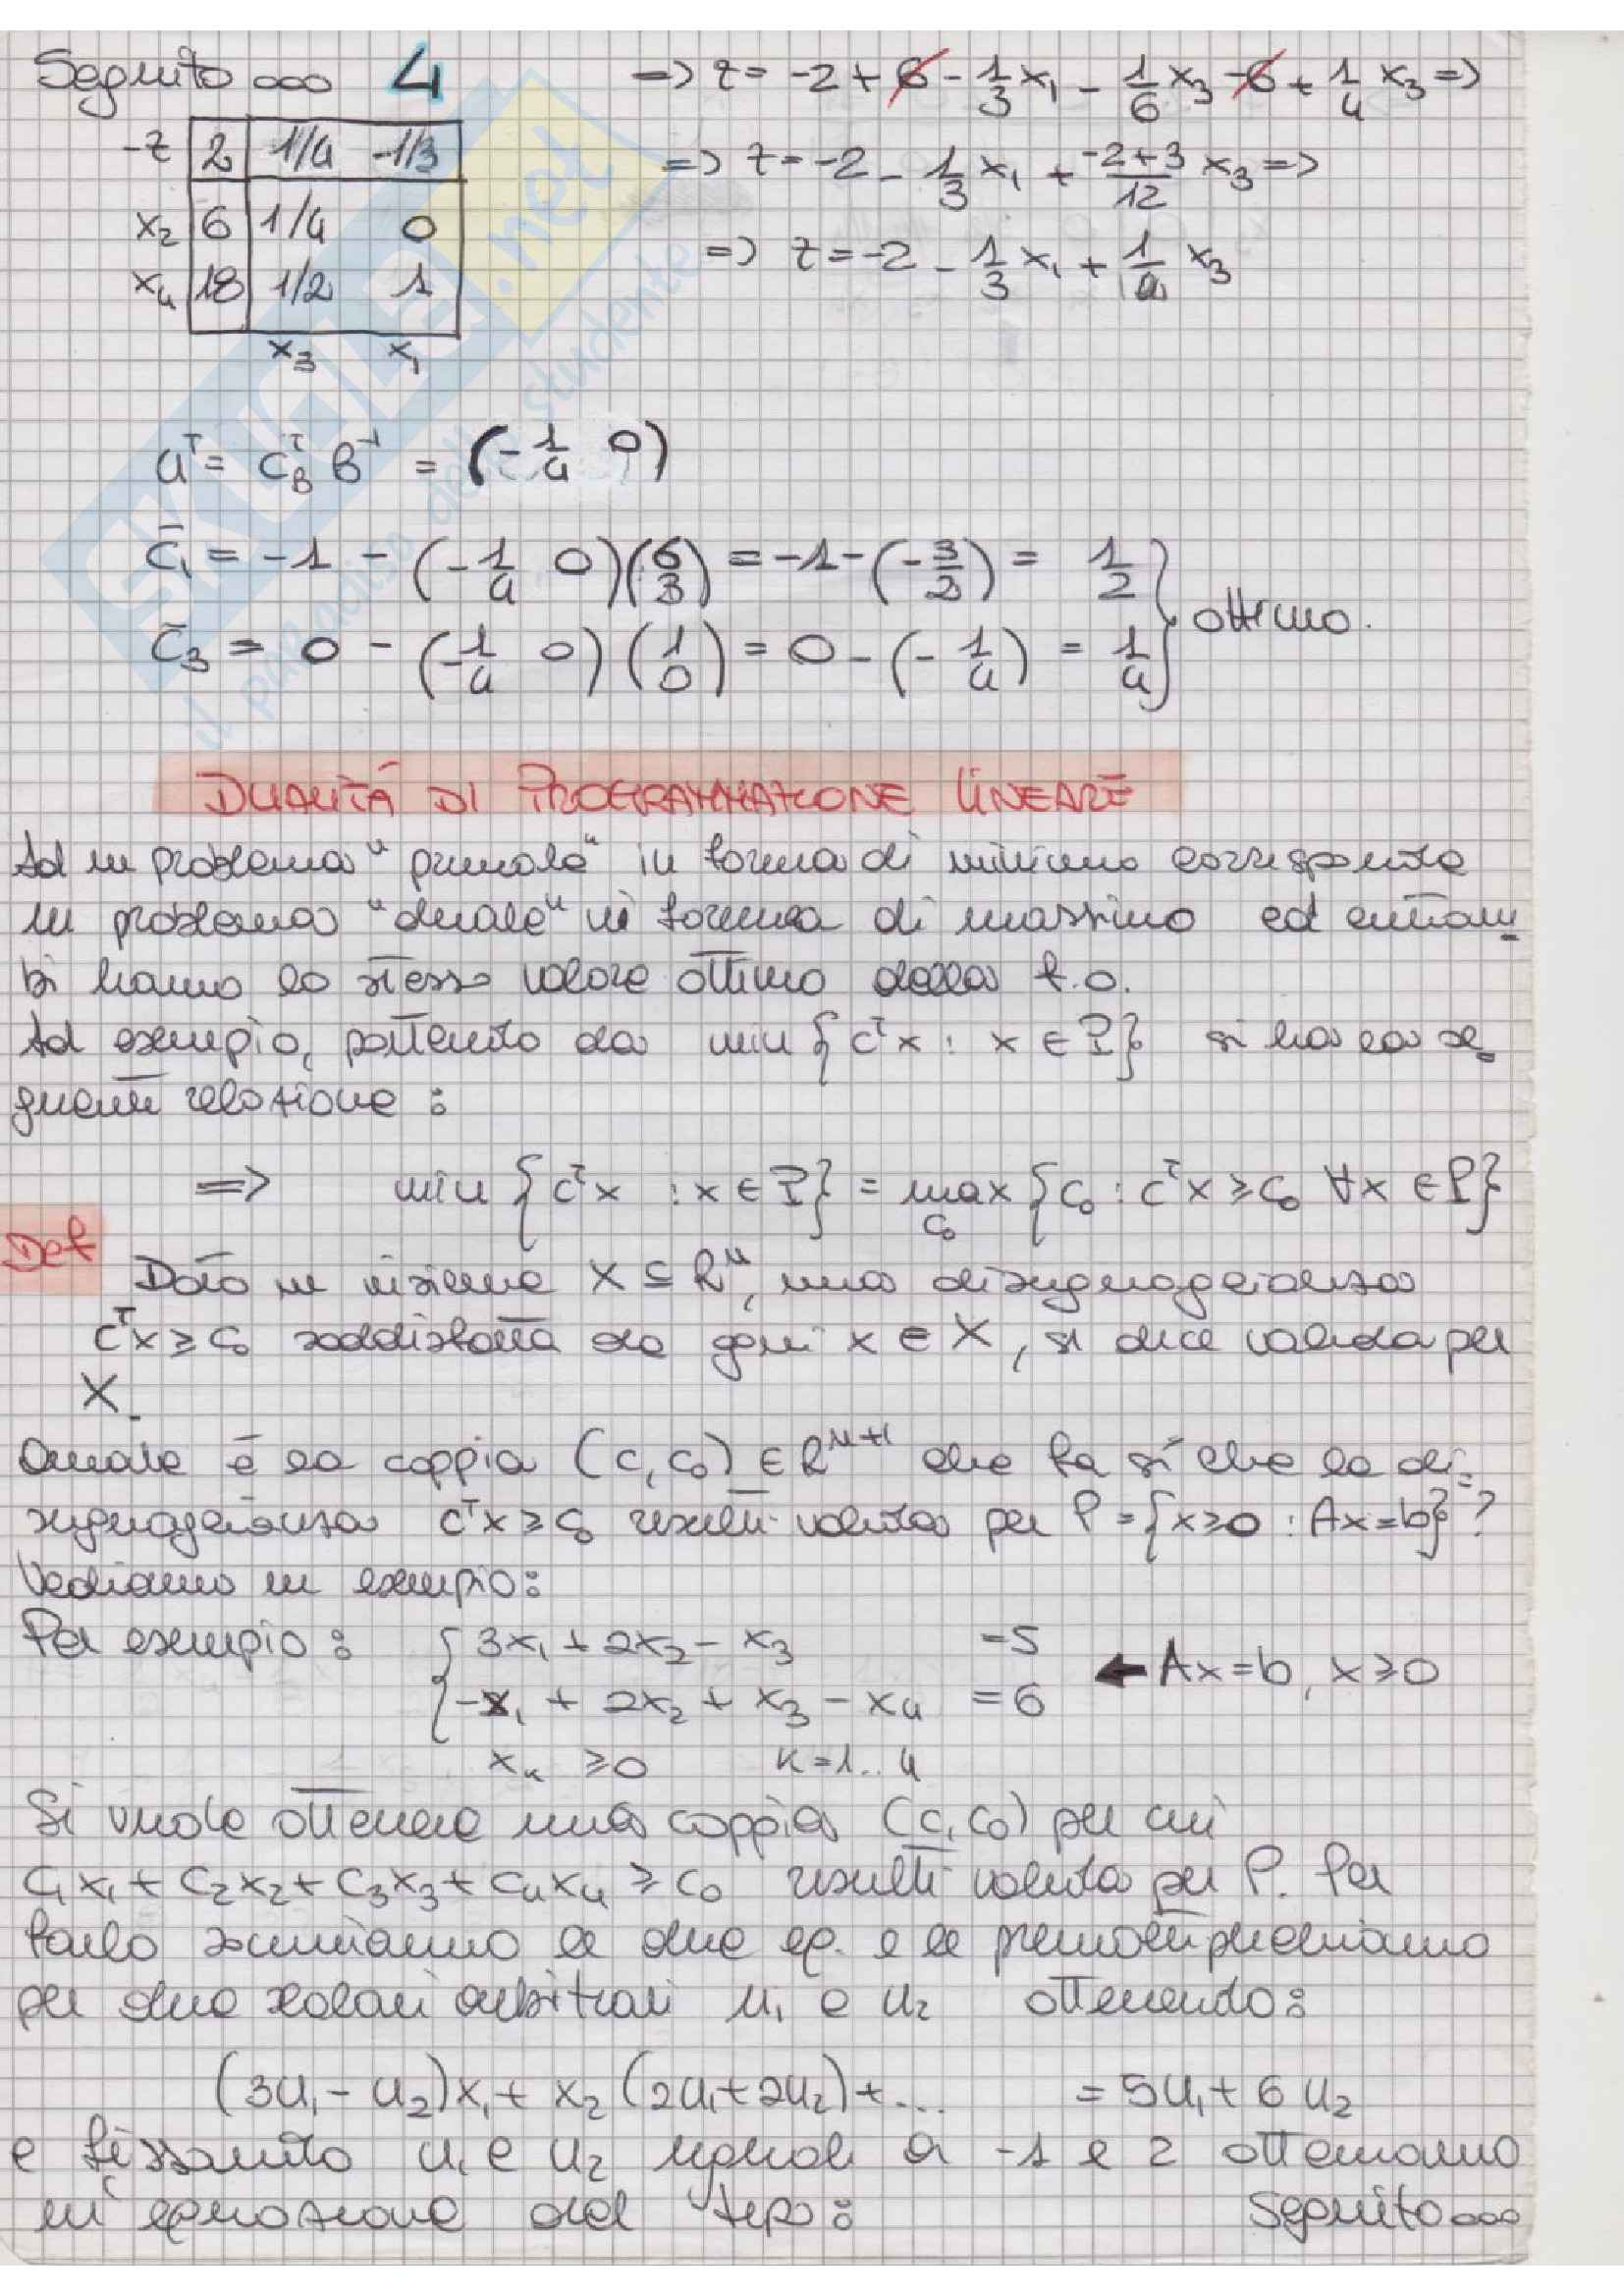 Seguito ooo 4
=> z = -2 + 6 - 1/3 x₁ - 1/6 x₃ - 6 + 1/4 x₃ =>
-z | 2 | 1/4 -1/3
=> z = -2 - 1/3 x₁ + (-2+3)/12 x₃ =>
x₂ | 6 | 1/4 0
=> z = -2 - 1/3 x₁ + 1/12 x₃
x₄ | 18 | 1/2 1
x₃ x₁
uᵀ = c_Bᵀ B⁻¹ = (-1/4 0)
c̄₁ = -1 - (-1/4 0)(6 3) = -1 - (-3/2) = 1/2
c̄₃ = 0 - (-1/4 0)(1 0) = 0 - (-1/4) = 1/4
ottimo.
DUALITÀ DI PROGRAMMAZIONE LINEARE
Ad un problema "primale" in forma di minimo corrisponde
un problema "duale" in forma di massimo ed entram-
bi hanno lo stesso valore ottimo della f.o.
Ad esempio, partendo da min {cᵀx : x ∈ P} si ha la se-
guente relazione :
=> min {cᵀx : x ∈ P} = max c₀ {c₀ : cᵀx ≥ c₀ ∀x ∈ P}
Def
Dato un insieme X ⊆ Rⁿ, una disuguaglianza
cᵀx ≥ c₀ soddisfatta da ogni x ∈ X, si dice valida per
X.
Quale è la coppia (c, c₀) ∈ Rⁿ⁺¹ che fa sì che la di-
suguaglianza cᵀx ≥ c₀ risulti valida per P = {x ≥ 0 : Ax = b} ?
Vediamo un esempio:
Per esempio : { 3x₁ + 2x₂ - x₃ = 5
-x₁ + 2x₂ + x₃ - x₄ = 6
← Ax = b, x ≥ 0
xₖ ≥ 0 k = 1..4
Si vuole ottenere una coppia (c, c₀) per cui
c₁x₁ + c₂x₂ + c₃x₃ + c₄x₄ ≥ c₀ risulti valida per P. Per
farlo sommiamo le due eq. e le premoltiplichiamo
per due scalari arbitrari u₁ e u₂ ottenendo:
(3u₁ - u₂)x₁ + x₂(2u₁ + 2u₂) + ... = 5u₁ + 6u₂
e fissando u₁ e u₂ uguali a -1 e 2 otteniamo
un'equazione del tipo: Seguito ooo
SKUOLA.net
il paradiso dello studente